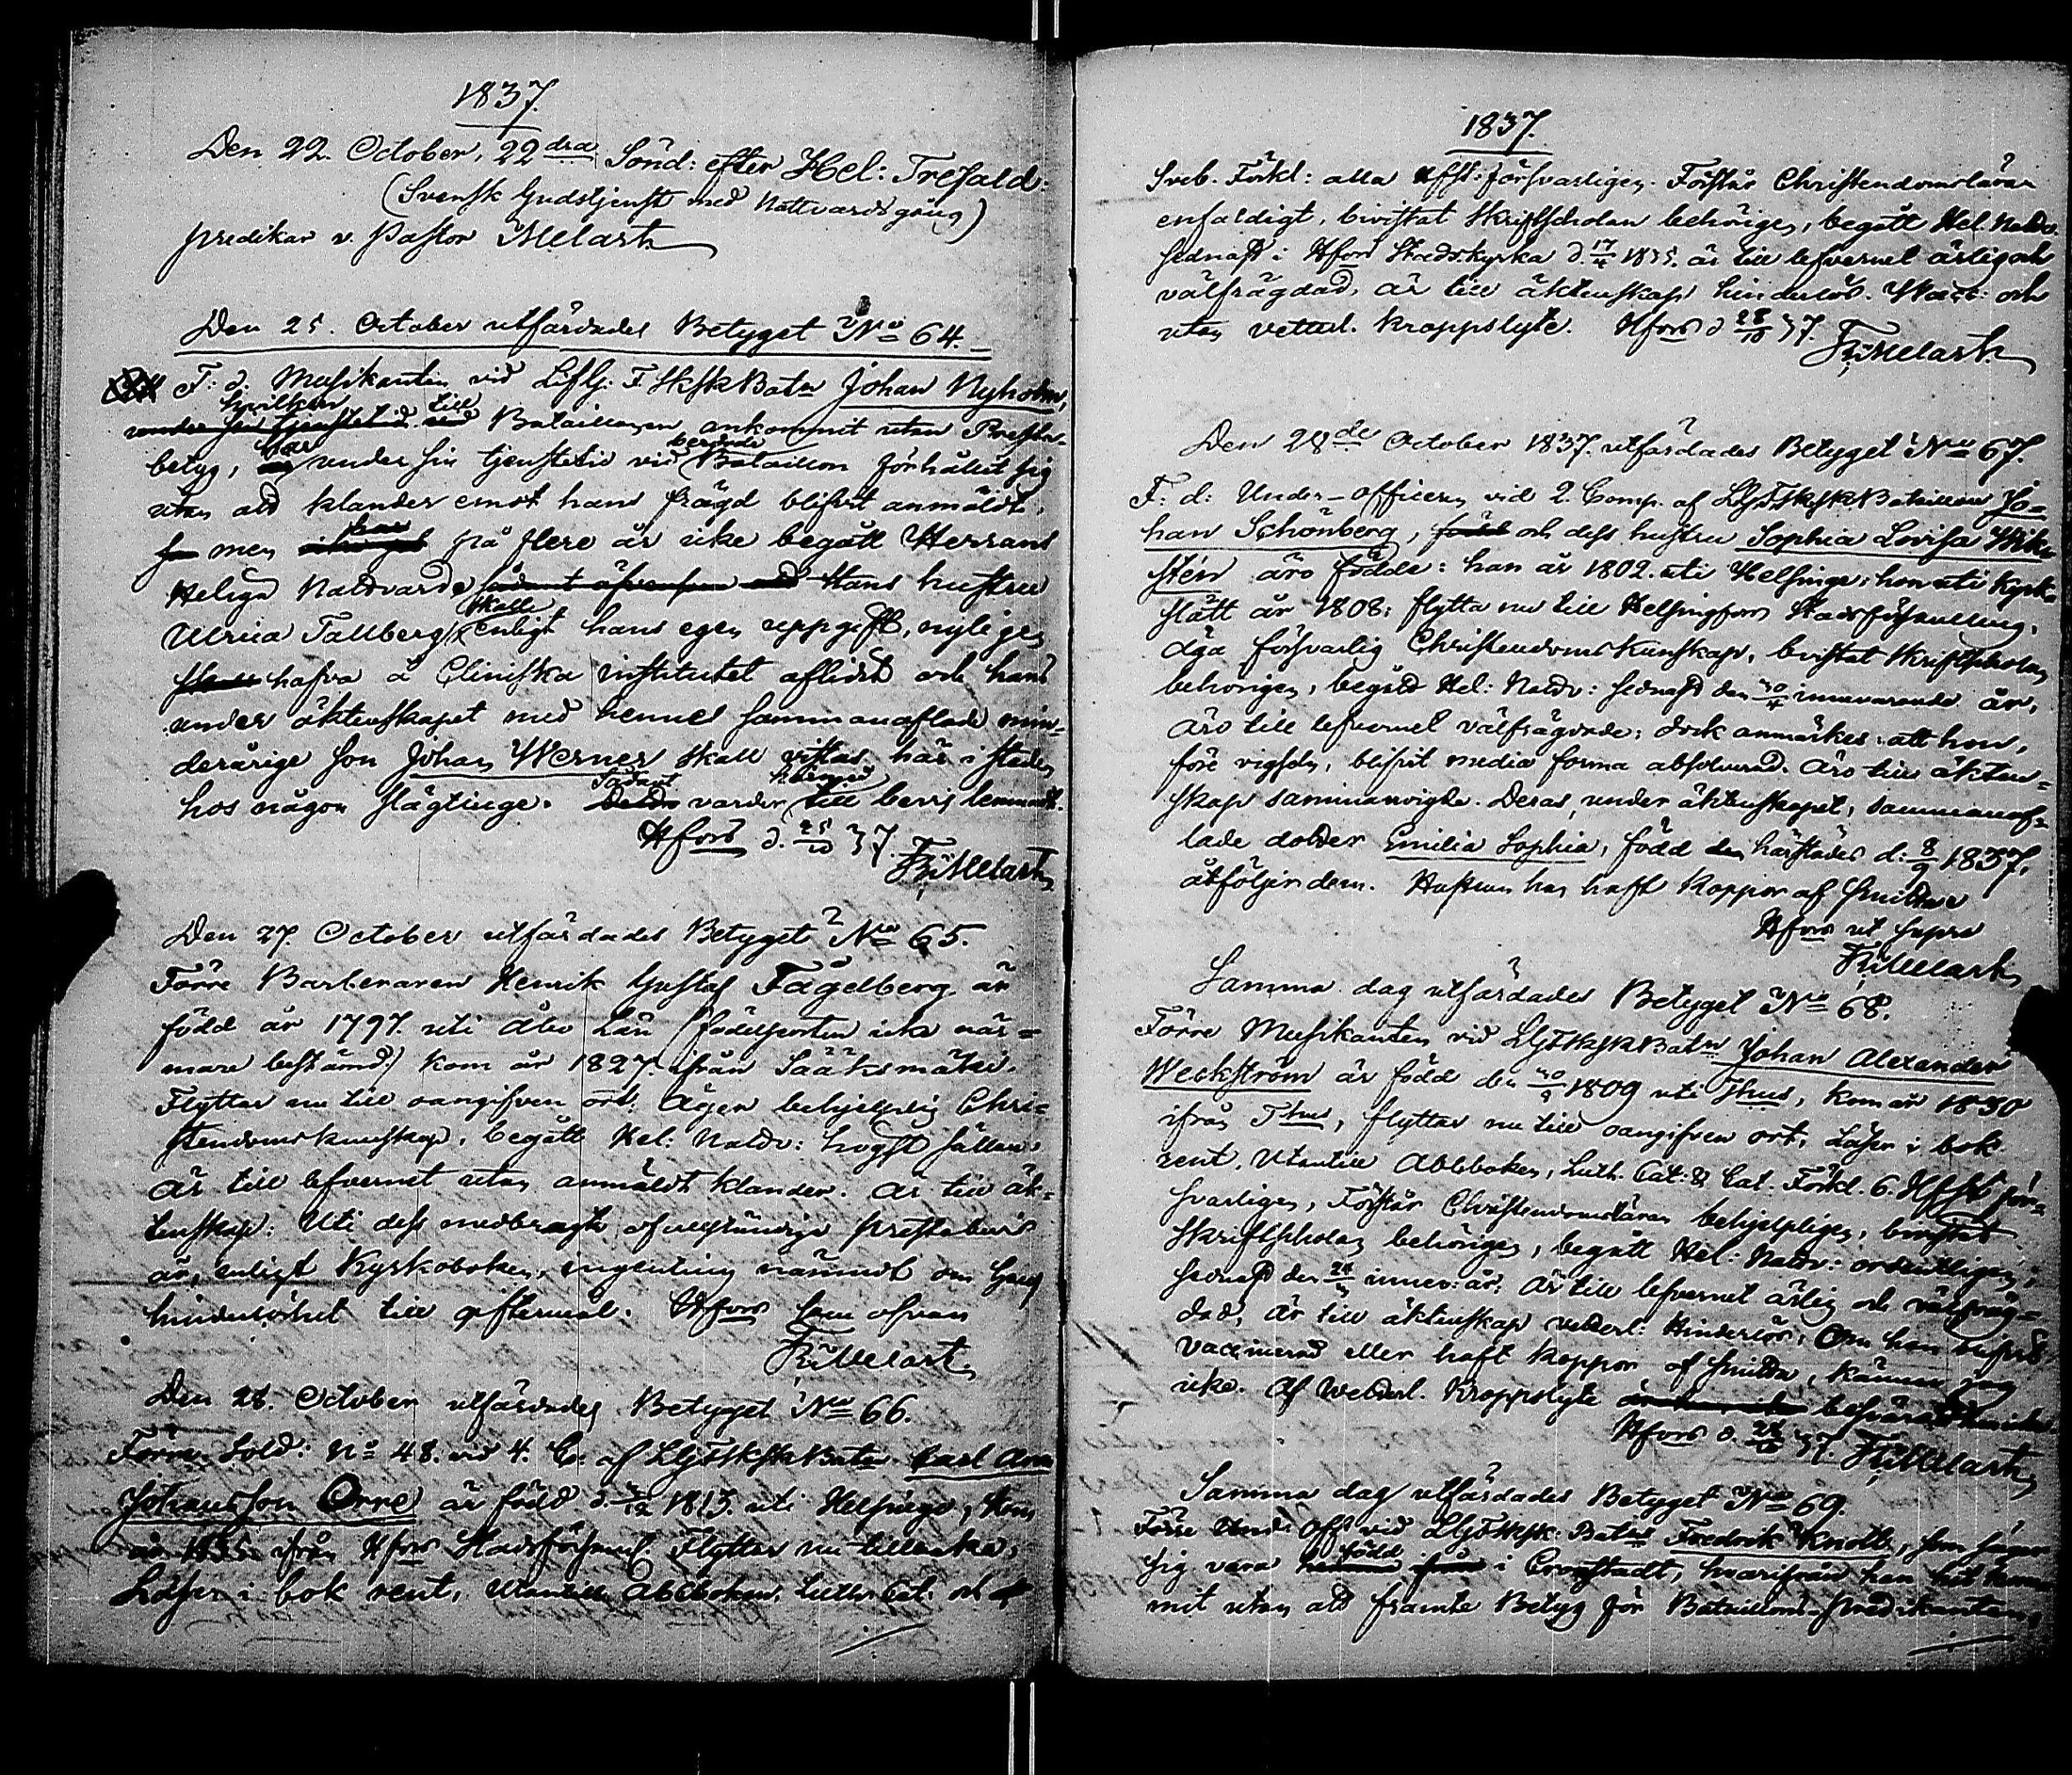 1837.
Den 22. October, 22dra Sönd: efter Hel: Trefald:
(Svensk Gudstjenst med Nattvardsgång)
predikar v. Pastor Melart
Den 25. October utfärdades Betyget No 64.
F: d. Musikanten vid LifG: F. SkSk Batn Johan Nyholm,
hvilken till Bataillonen ankommit utan Preste-
betyg, har under sin tjenstetid vid berörde Bataillon förhållit sig
utan att klander emot hans frägd blifvit anmäldt,
men har på flere år icke begått Herrans
Heliga Nattvard. Hans hustru
Ulrica Tallberg skall enligt hans egen uppgift, nyligen
hafva å Cliniska institutet aflidit och hans
under äktenskapet med hennes sammanaflade min-
derårige son Johan Werner skall vistas här i staden
hos någon slägtinge. Sådant varder härmed till bevis lemnadt.
Hfors d. 25/10 37.
Fr: Melart
Den 27. October utfärdades Betyget No 65.
Förre Barberaren Henrik Gustaf Fagelberg, är
född år 1797. uti Åbo Län (födelseorten icke när-
mare bestämd) kom år 1827. ifrån Sääksmäki.
Flyttar nu till oangifven ort; Äger behjelplig Chri-
stendomskunskap, begått Hel: Nattv: högst sällan.
Är till lefvernet utan anmäldt klander. Är till äk-
tenskap: Uti dess medbragte ofullständige prestebevis
är, enligt Kyrkoboken, ingenting nämndt om hans
hinderlöshet till giftermål. Hfors som ofvan
Fr: Melart
Den 28. October utfärdades Betyget No 66.
Förre Sold: No 48. vid 4. C. af LGFSkSkBatn Carl
Johansson Orre är född d. 1813. uti Helsinge, kom
ifrån Hfors Stadsförsaml. Flyttar nu tillbaka,
Läser i bok rent, utantill Abcboken, Luth. Cat. och
1837.
Sveb. Förkl: alla Hfst: försvarligen. Förstår Christendomsläran
enfaldigt, bivistat Skriftscholan behörigen, begått Hel. Nattv.
sednast i Hfors Stadskyrka d. 17/4 1835. är till lefvernet ärlig och
välfrägdad, är till äktenskap hinderlös. Vacc: och
utan vetterl. kroppslyte. Hfors d 28/10 37.
Fr: Melart
Den 28de October 1837. utfärdades Betyget No 67.
F: d: Under-officeren vid 2. Comp. af LGFSkSkBataillon Jo-
han Schönberg, och dess hustru Sophia Lovisa Wik-
stén äro födde: han år 1802. uti Helsinge; hon uti Kyrk-
slätt år 1808: flytta nu till Helsingfors Stadsförsamling.
Äga försvarlig Christendomskunskap, bivistat Skriftscholan
behörigen, begått Hel: Nattv: sednast den 30/4 innevarande år,
äro till lefvernet välfrägdade; dock anmärkes: att hon,
före vigseln, blifvit media forma absolverad. Äro till äkten-
skap sammanvigde. Deras, under äktenskapet, sammanaf-
lade dotter Emilia Sophia, född härstädes d: 8/9 1837,
åtföljer dem. Hustrun har haft koppor af smittan
Hfors ut supra
Fr: Melart
Samma dag utfärdades Betyget No 68.
Förre Musikanten vid LGFSkSkBatn Johan Alexander
Weckström är född den 30/9 1809 uti Thus, kom år 1830
ifrån Thus, flyttar nu till oangifven ort, Läser i bok
rent, utantill Abcboken, Luth. Cat: & Cat: Förkl. 6. Hfst för-
svarligen, Förstår Christendomsläran behjelpligen, bivistat
Skriftscholan behörigen, begått Hel: Nattv: ordentligen;
sednast den innev: år; Är till lefvernet ärlig och välfräg-
dad; är till äktenskap vetterl: hinderlös; Om han blifvit
vaccinerad eller haft koppor af smitta, känner jag
icke. Af vetterl. kroppslyte besväras han icke
Hfors d. 28/10 37. Fr: Melart
Samma dag utfärdades Betyget No 69.
Förre Und: Off vid LGFSkSk: Batns Fredrik Knoth, som säger
sig vara född i Cronstadt, hvarifrån han hit kom-
mit utan att framte Betyg för Bataillons-predikanten,